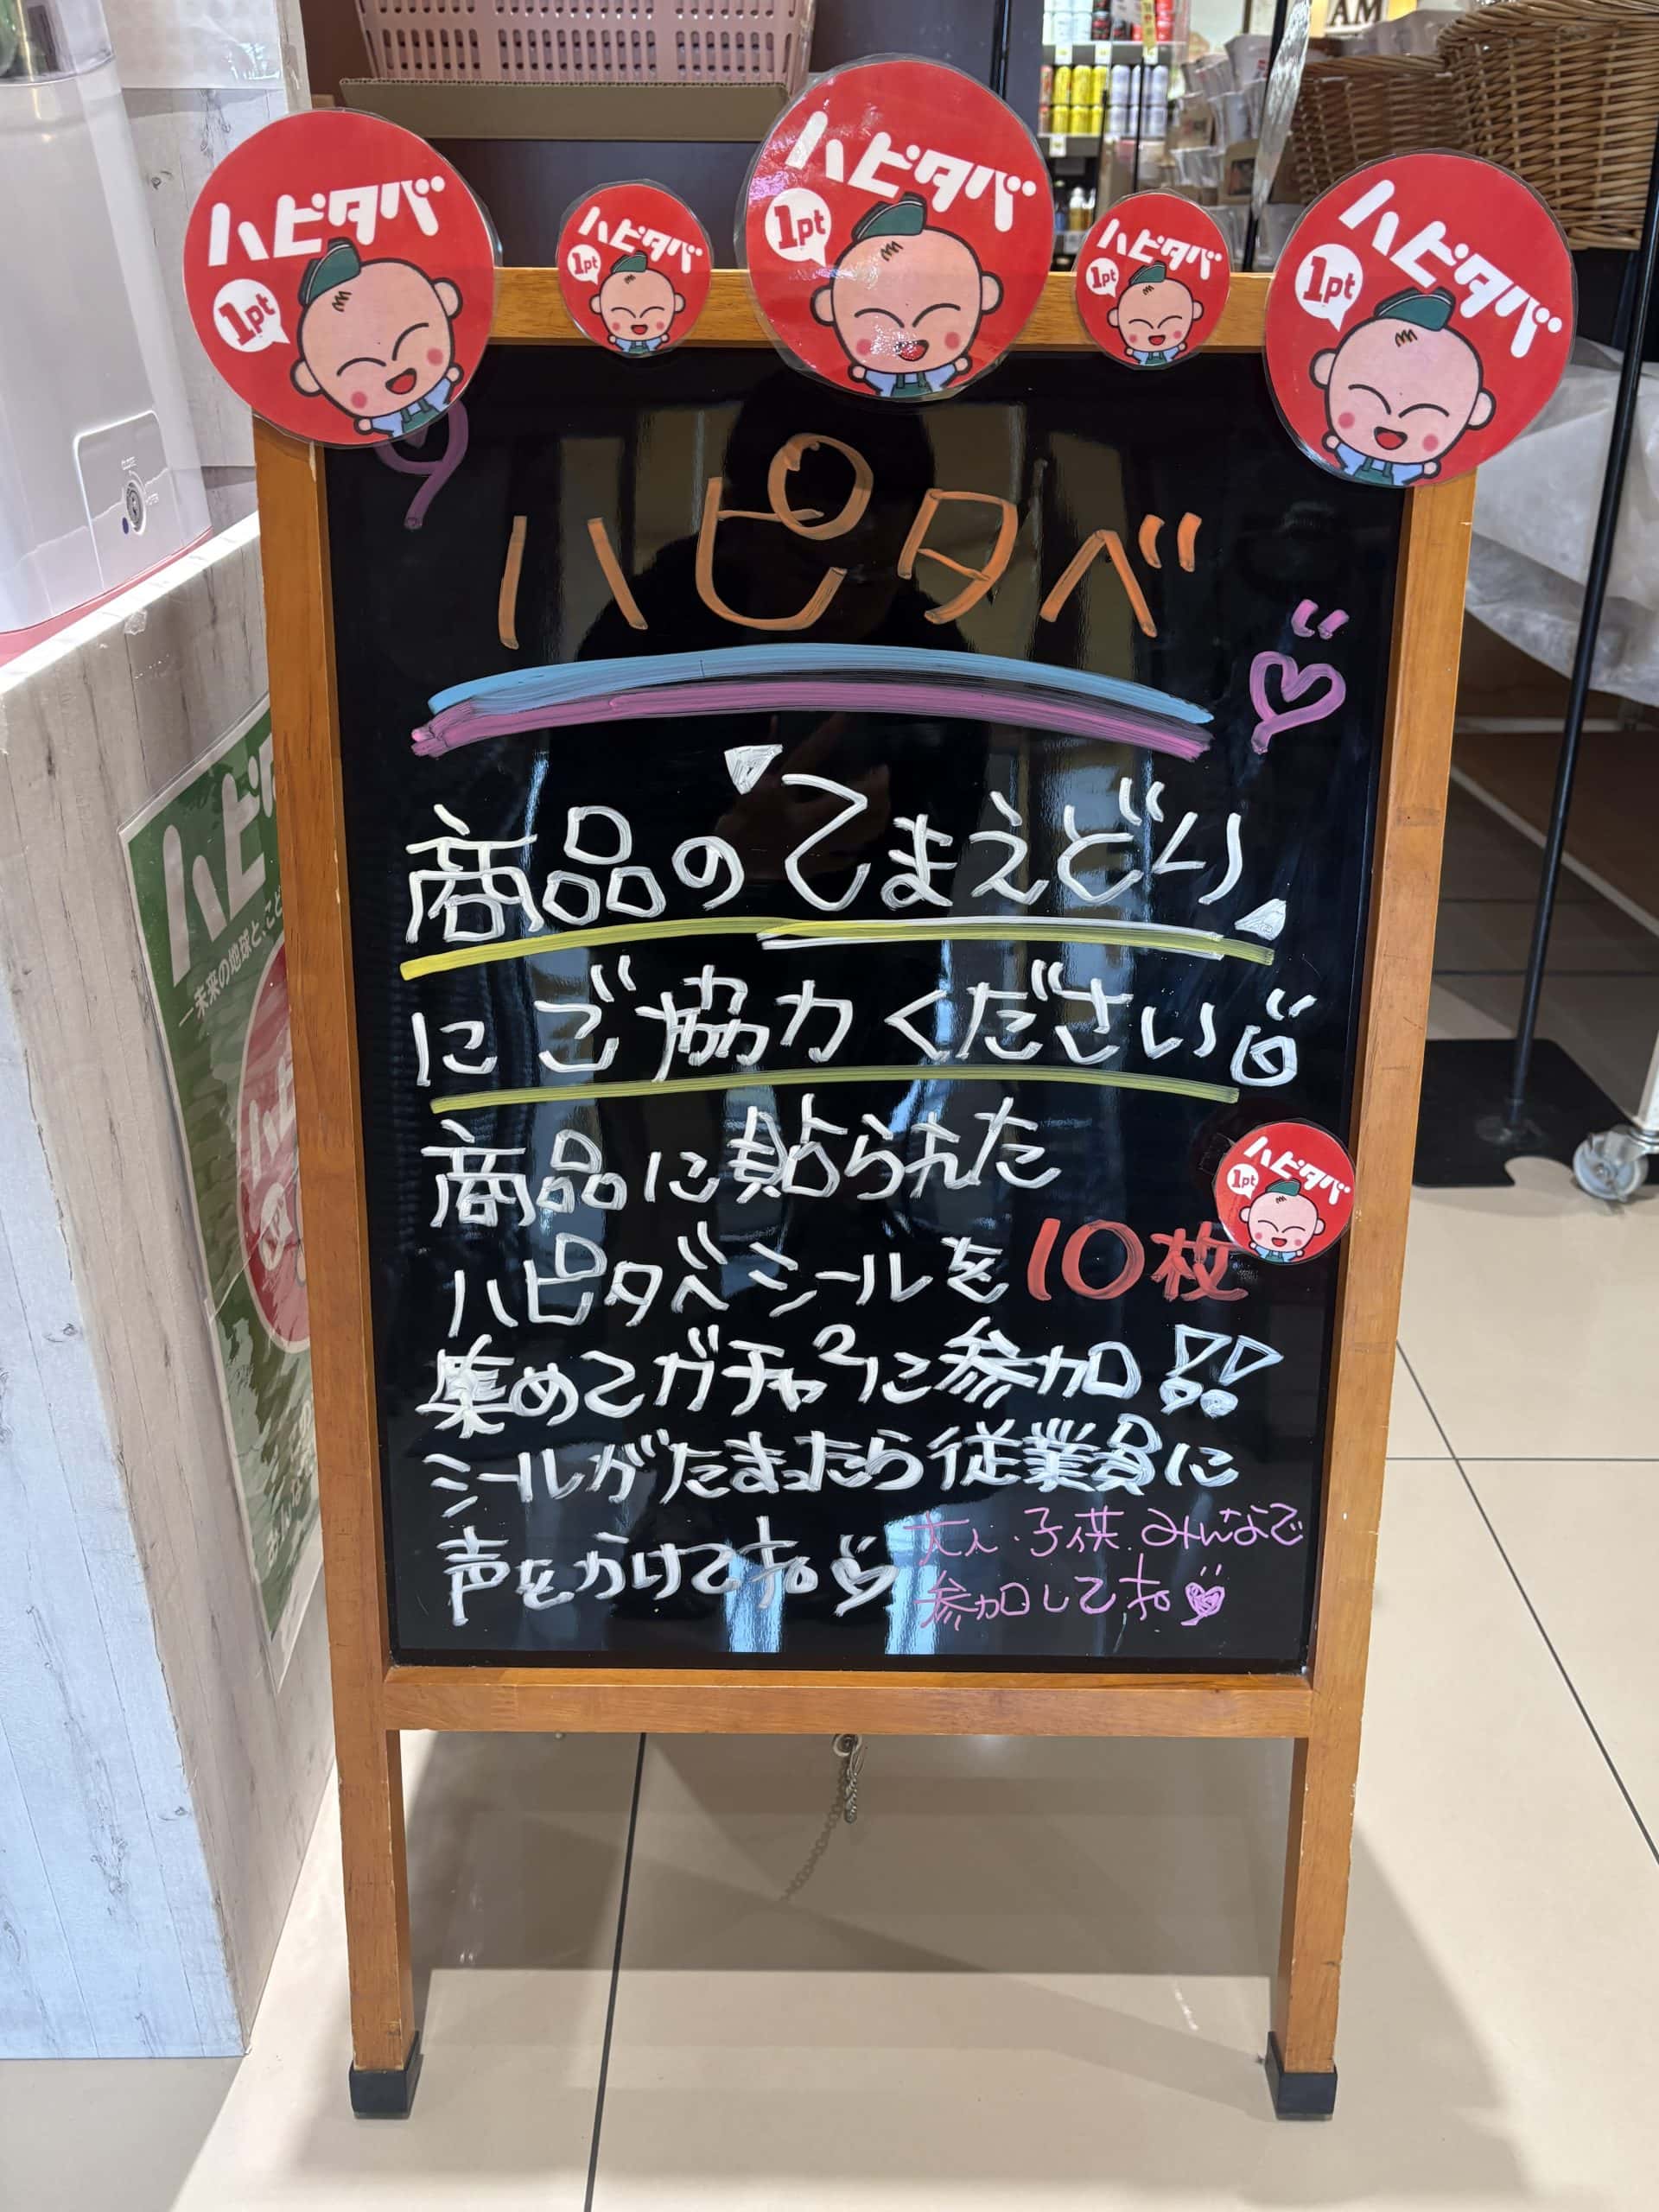 AM
ハピタベ
1pt
ハピタベ
1pt
ハピタベ
1pt
ハピタベ
1pt
ハピタベ
1pt
ハピタベ
商品の「てまえどり」
にご協力ください
商品に貼られた
ハピタベシールを10枚
ハピタベ
1pt
集めてガチャ²に参加!!
シールがたまったら従業員に
声をかけてネ。
大人・子供.みんなで
参加してネ。
ハピ
―未来の地球と、こど